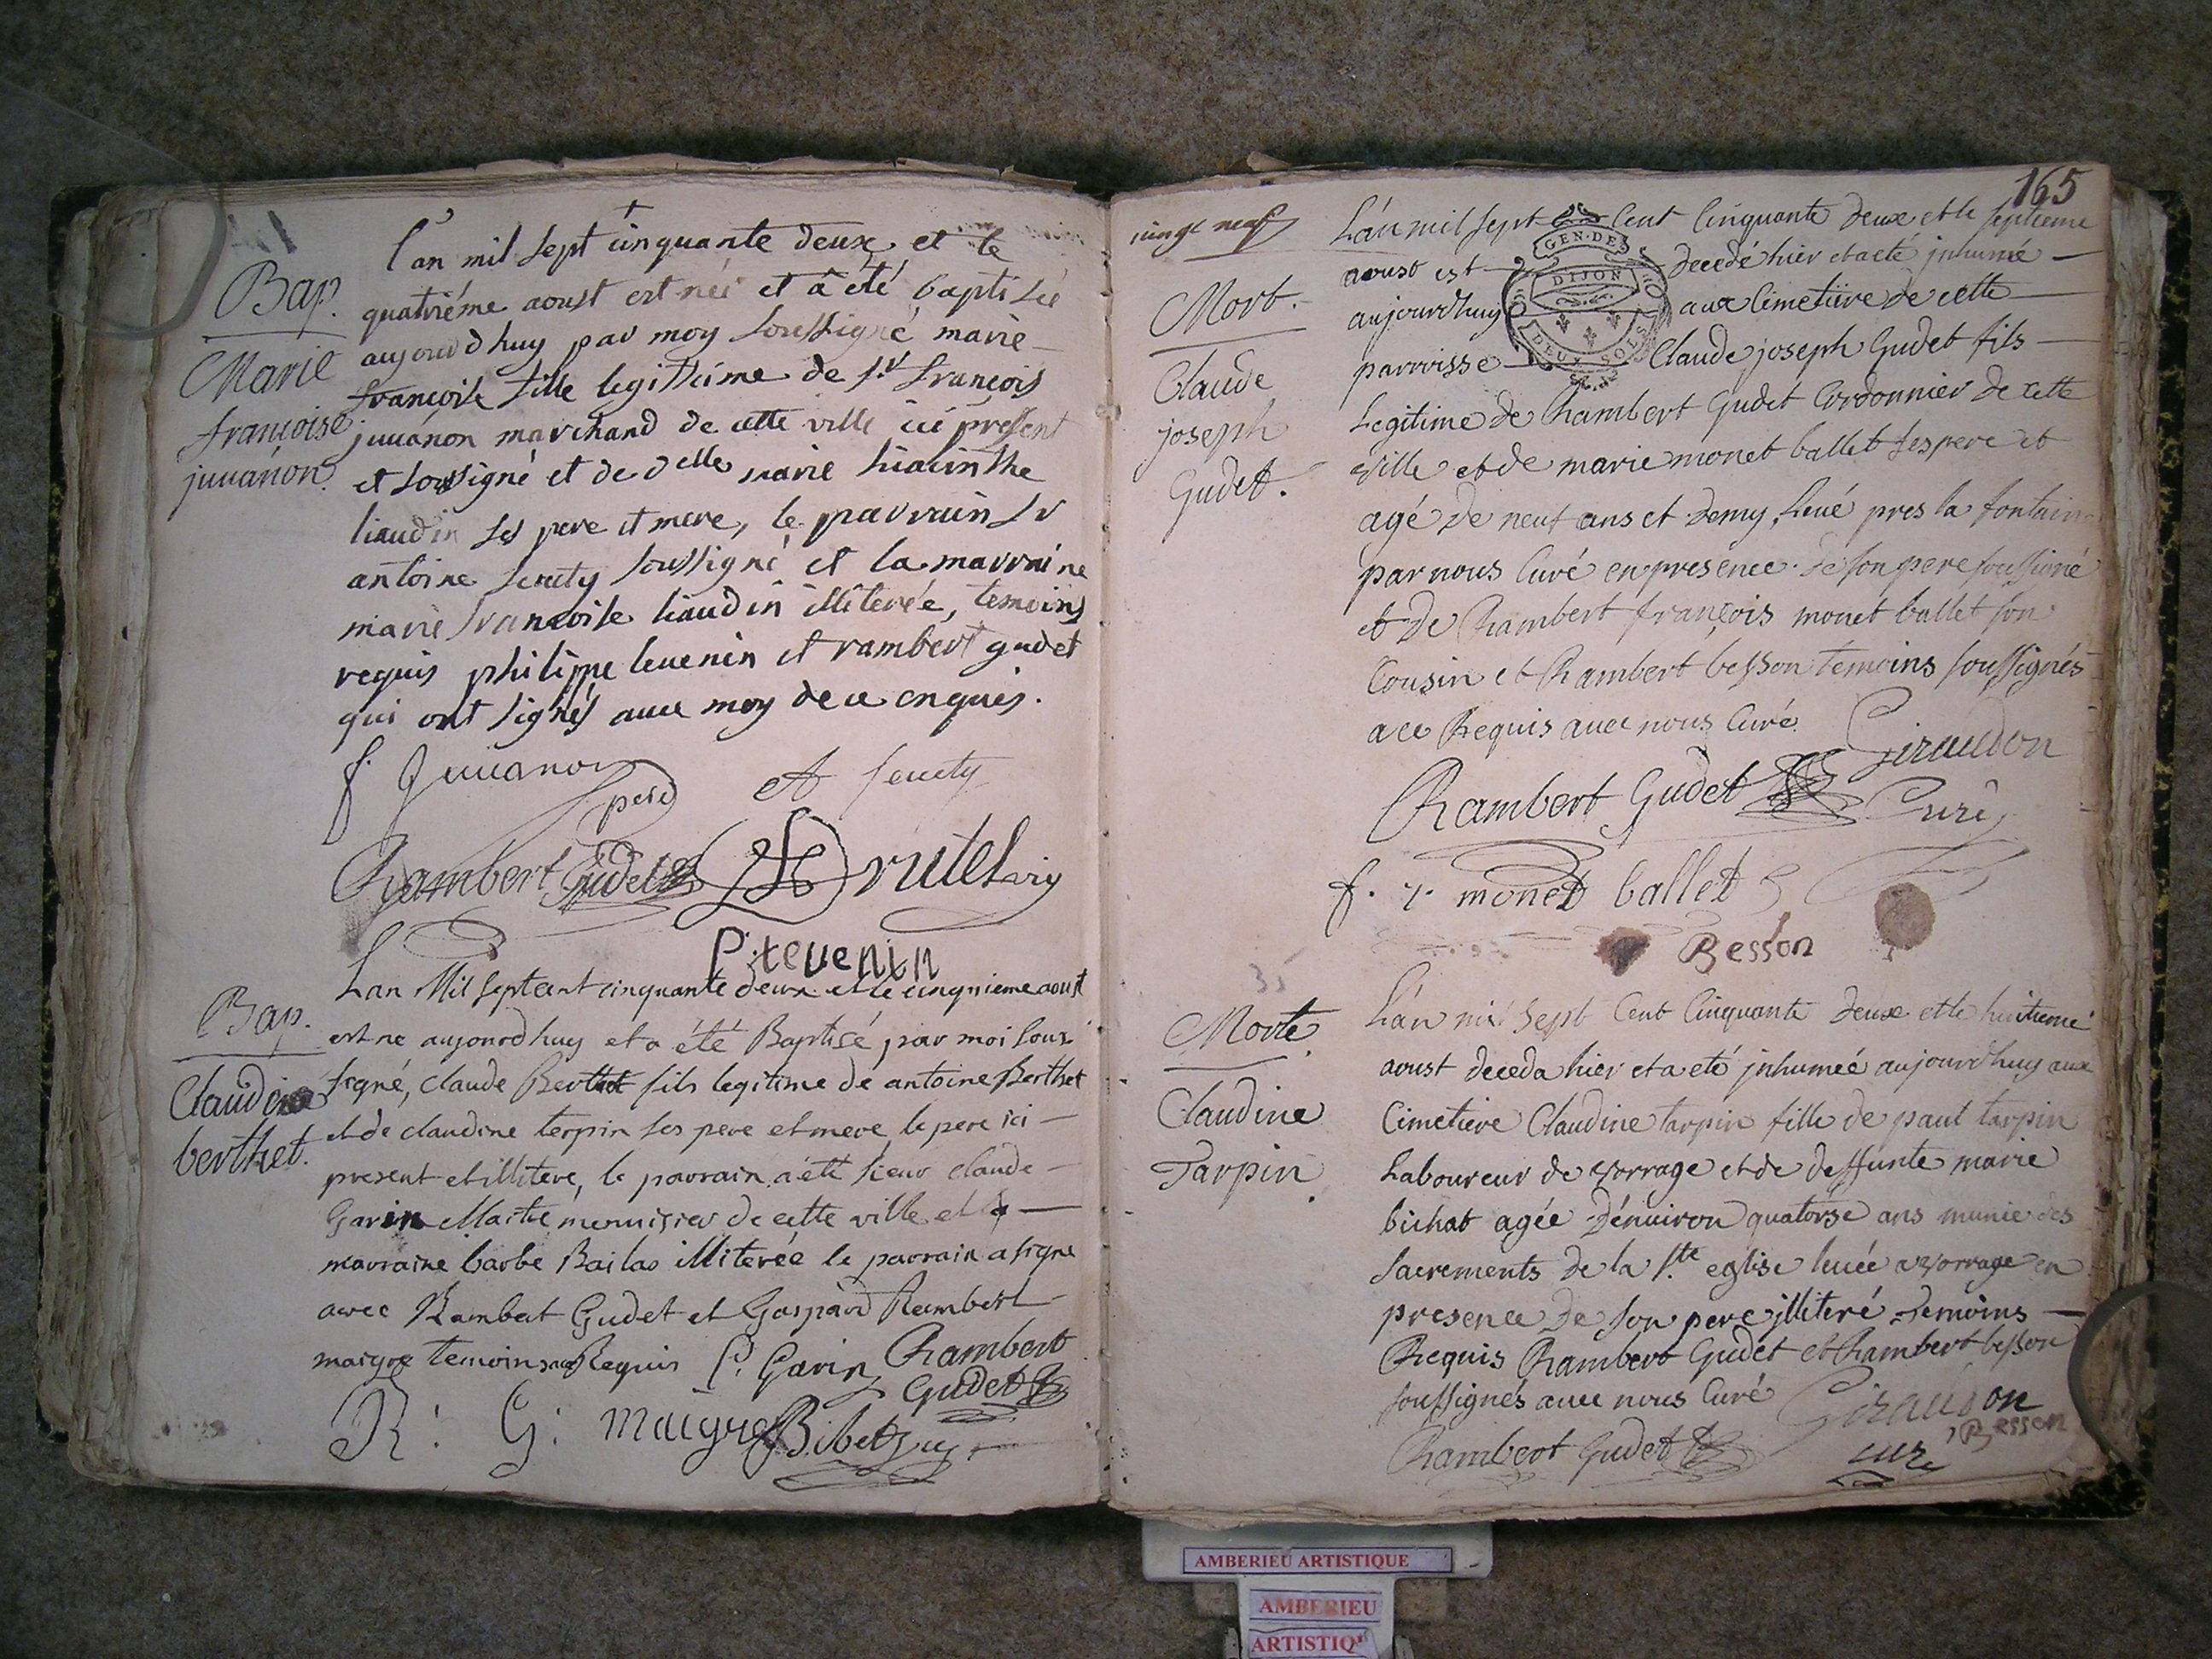 Bap.
Marie
françoise
juuanon.
l'an mil sept cinquante deux et le
quatriéme aoust est née et à été baptisée
aujourdhuy par moy soussigné marie
françoise fille legittime de sr françois
juuanon marchand de cette ville ici présent
et soussigné et de delle marie hiacinthe
liaudin ses pere et mere, le parrain sr
antoine soussigné et la marraine
marie françoise liaudin illiterée, temoins
requis philippe teuenin et rambert gudet
qui ont signés auec moy de ce enquis.
f. Juuanon
pere
A
Rambert Gudet
Brutel vic
P. teuenin
Bap.
Claudine
berthet.
Lan Mil sept cent cinquante deux et le cinquieme aoust
est ne aujourdhuy et a été Baptisé, par moi sous
signé, claude Berthet fils legitime de antoine Berthet
et de claudine terpin ses pere et mere, le pere ici
present et illitere, le parrain a été sieur claude
Garin Maitre menuisier de cette ville et la
marraine barbe Bailao illiterée le parrain a signe
avec Rambert Gudet et Gaspard Rambert
maigre temoins Requis C. Garin Rambert
Gudet
R: G: maigre
165
vingt neuf
Mort.
Claude
joseph
Gudet.
GEN. DES
DIJON
DEUX SOLS
L'an mil sept Cent Cinquante deux et le septieme
aoust est decedé hier et a eté jnhumé
aujourdhuy aux Cimetiere de cette
parroisse Claude joseph Gudet fils
Legitime de Rambert Gudet Cordonnier de cette
Ville et de marie monet ballet ses pere et
agé de neuf ans et demy, Leué pres la fontaine
par nous Curé en presence de son pere soussigné
et de Rambert françois monet ballet son
Cousin et Rambert besson temoins soussignés
a ce Requis auec nous Curé Giraudon
Rambert Gudet Curé
f. r. monet ballet
Besson
35
Morte
Claudine
Tarpin
L'an mil Sept Cent Cinquante deux et le huitieme
aoust deceda hier et a eté jnhumeé aujourdhuy aux
Cimetiere Claudine tarpin fille de paul tarpin
Laboureur de vorrage et de deffunte marie
bichat agée d'enuiron quatorse ans munie des
Sacrements de la Ste eglise leuée a vorrage en
presence de son pere jlliteré temoins
Requis Rambert Gudet et Rambert besson
soussignés auec nous Curé Giraudon
Besson
Rambert Gudet curé
AMBERIEU ARTISTIQUE
AMBERIEU
ARTISTIQ